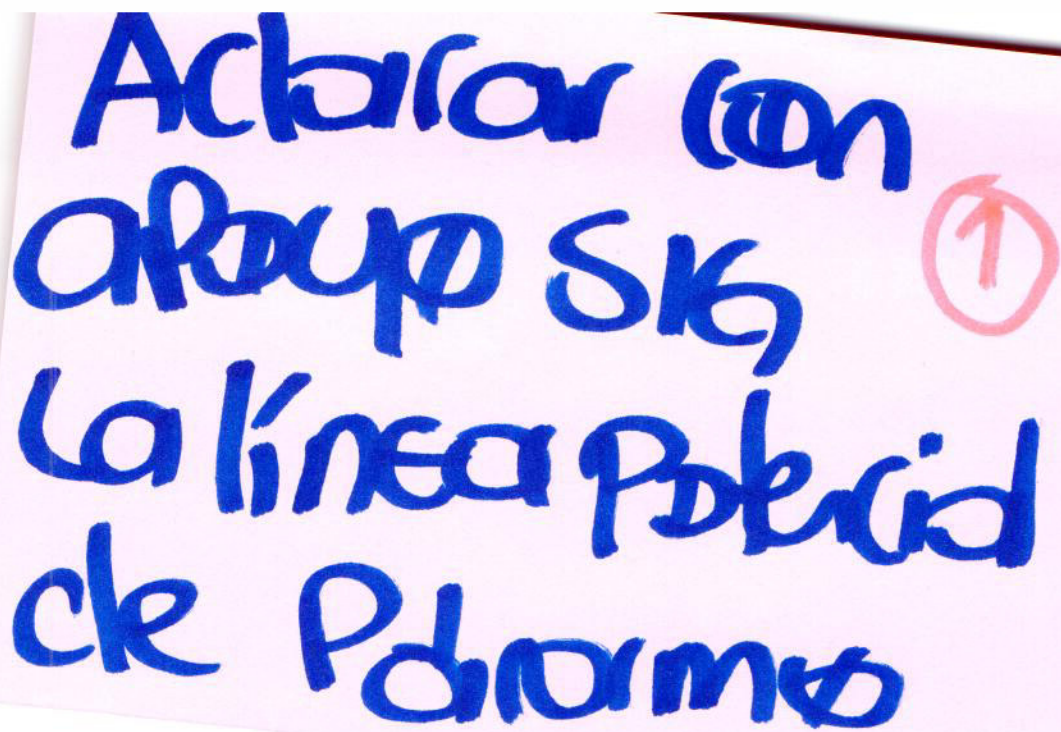 Aclarar con
apoyo SIG
①
La línea Potencial
de Páramos